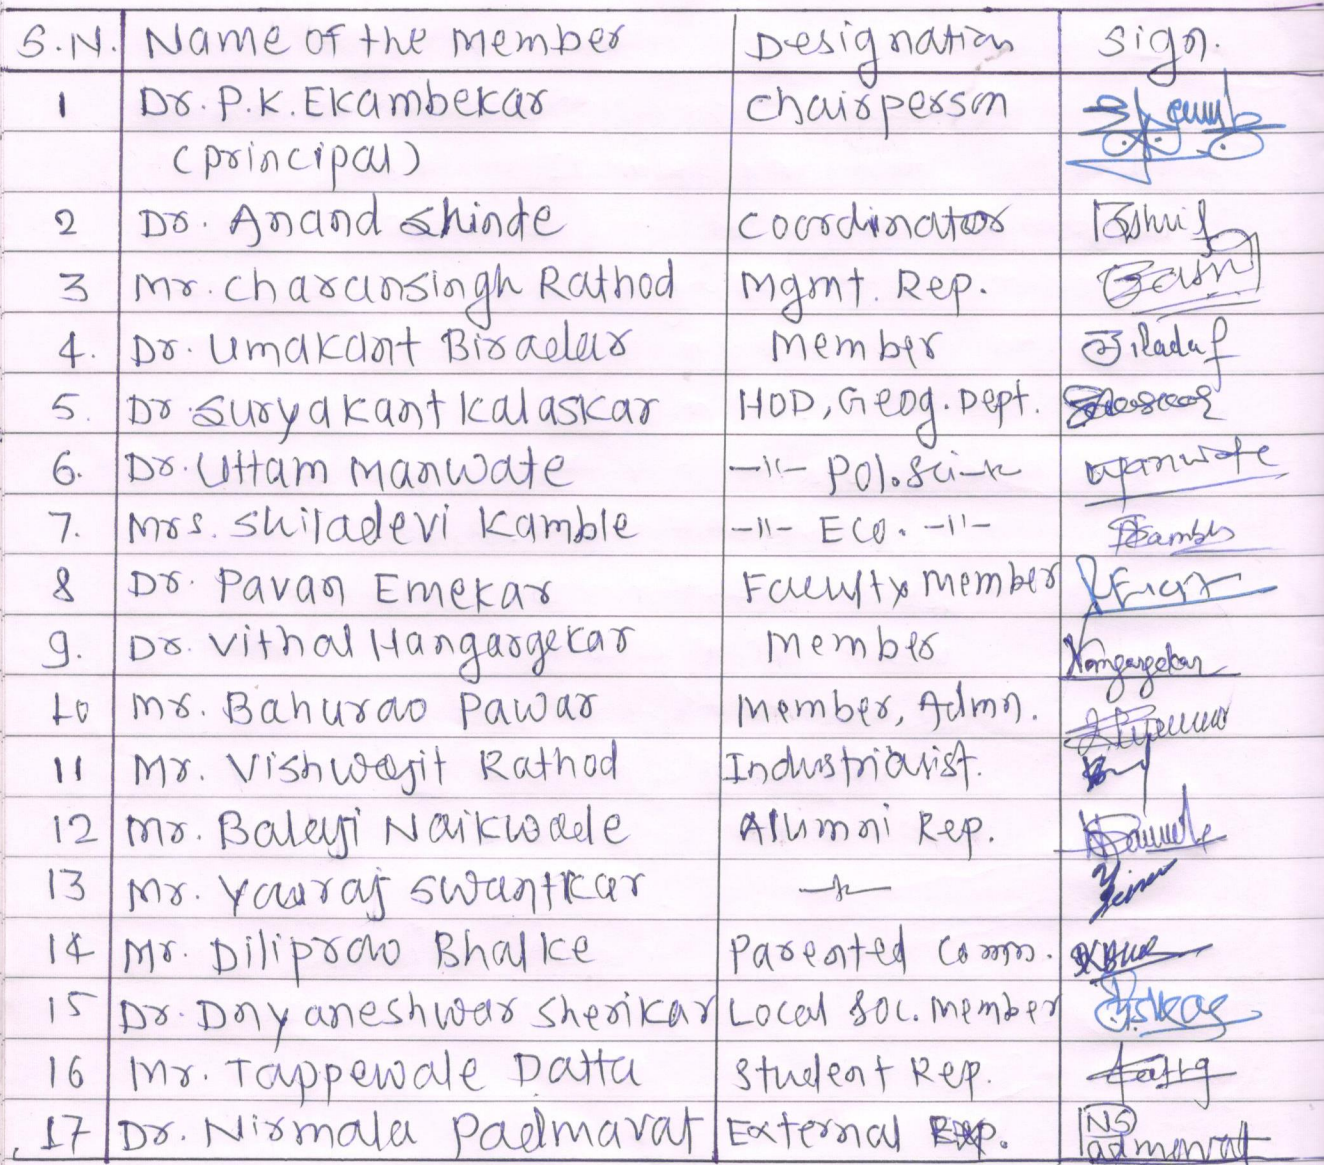 S.N. Name of the member Designation Sign.
1 Dr. P.K. Ekambekar Chairperson
(principal)
2 Dr. Anand Shinde Coordinator
3 Mr. Charansingh Rathod Mgmt. Rep.
4. Dr. Umakant Biradar Member
5. Dr. Suryakant Kalaskar HOD, Geog. Dept.
6. Dr. Uttam Manwate -11- Pol. Sci -11-
7. Mrs. Shiladevi Kamble -11- Eco. -11-
8 Dr. Pavan Emekar Faculty Member
9. Dr. Vithal Hangargekar Member Hangargekar
10 Mr. Bahurao Pawar Member, Admn.
11 Mr. Vishwajit Rathod Industrialist.
12 Mr. Balaji Naikwade Allumni Rep.
13 Mr. Yauraj Swantkar -11-
14 Mr. Diliprao Bhalke Parented Comm.
15 Dr. Dnyaneshwar Sherikar Local Soc. Member
16 Mr. Tappewale Datta Student Rep.
17 Dr. Nirmala Padmavat External Rep.